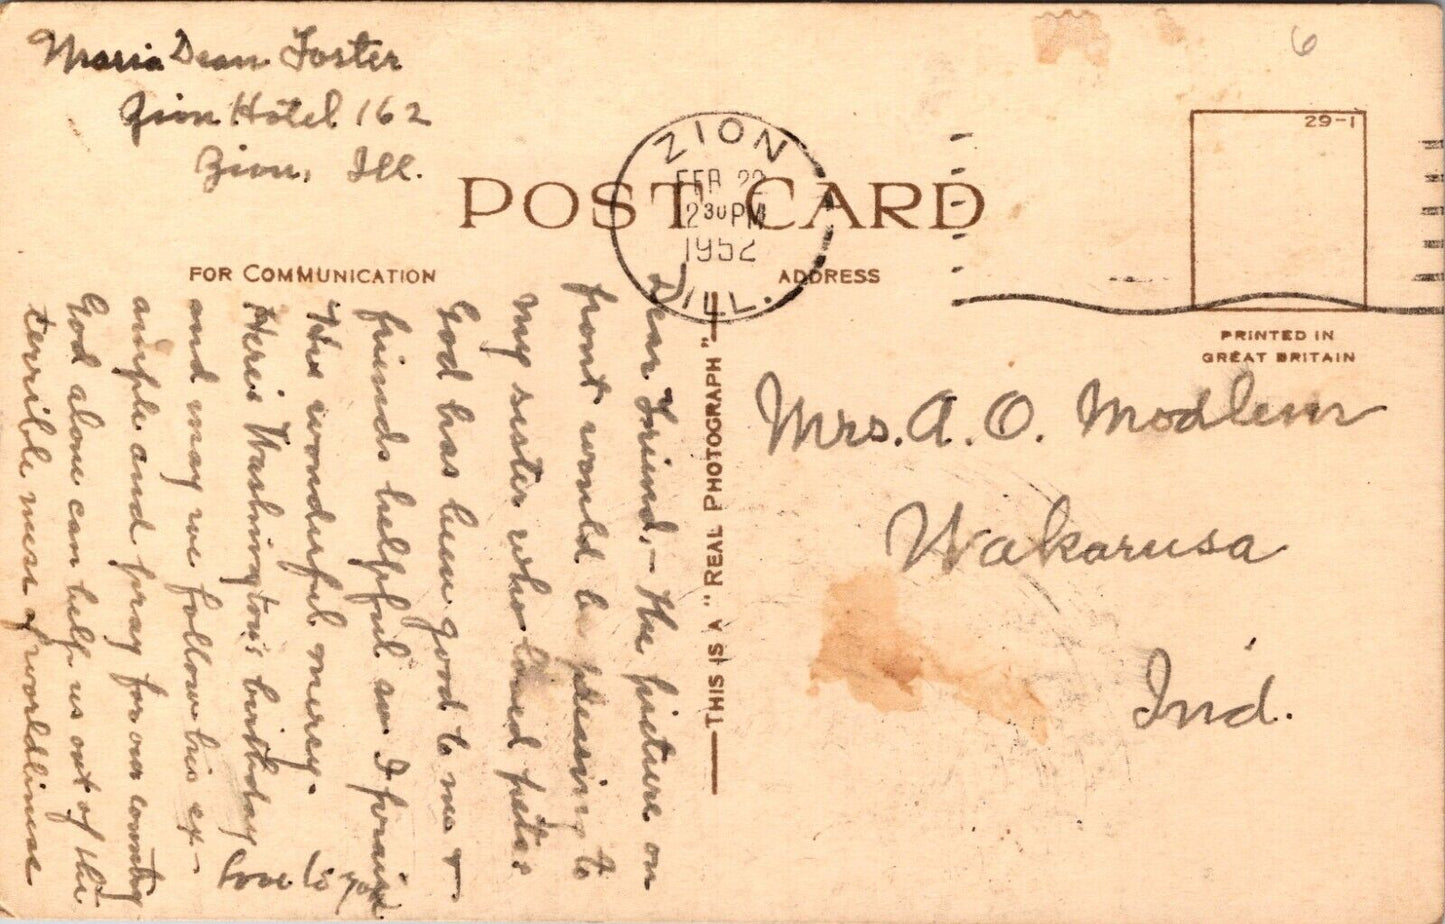 Maria Dean Foster
Zion Hotel 162
Zion, Ill.
6
29-1
ZION
FEB 22
2 30 PM
1952
ILL.
POST CARD
FOR COMMUNICATION
ADDRESS
PRINTED IN
GREAT BRITAIN
THIS IS A "REAL PHOTOGRAPH"
Dear Friend, - The picture on
front would be pleasing to
my sister who loved pets.
God has been good to me &
friends helpful so I praise
His wonderful mercy.
Here's Washington's birthday
and may we follow his ex-
ample and pray for our country
God alone can help us out of the
terrible mess of worldliness
Love to you
Mrs. A. O. Modlem
Wakarusa
Ind.